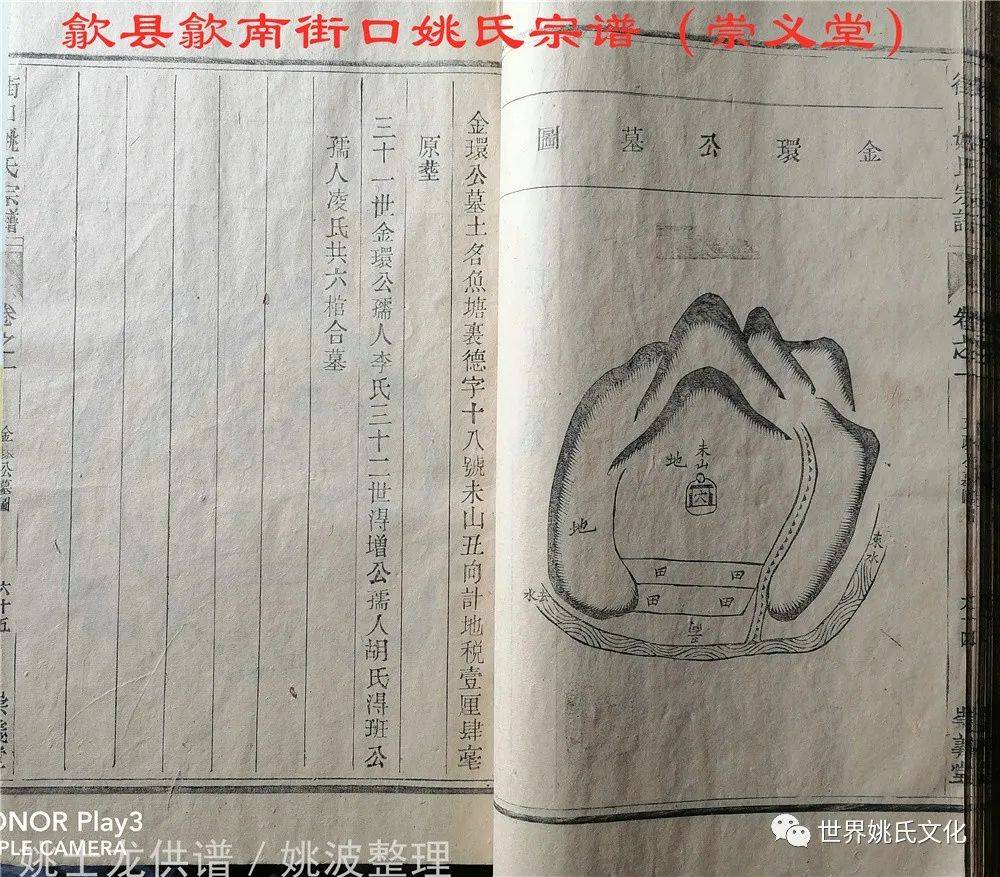 歙县歙南街口姚氏宗谱（崇义堂）
金環公墓圖
未山
地
穴
地
田
田
田
田
來水
去水
街口姚氏宗譜
卷之一
崇義堂
金環公墓土名魚塘裏德字十八號未山丑向計地税壹厘肆毫
原塟
三十一世金環公孺人李氏三十二世得增公孺人胡氏得班公
孺人凌氏共六棺合墓
街口姚氏宗譜
卷之一
金環公墓圖
六十五
崇義堂
HONOR Play3
TRIPLE CAMERA
姚土龙供谱 / 姚波整理
世界姚氏文化